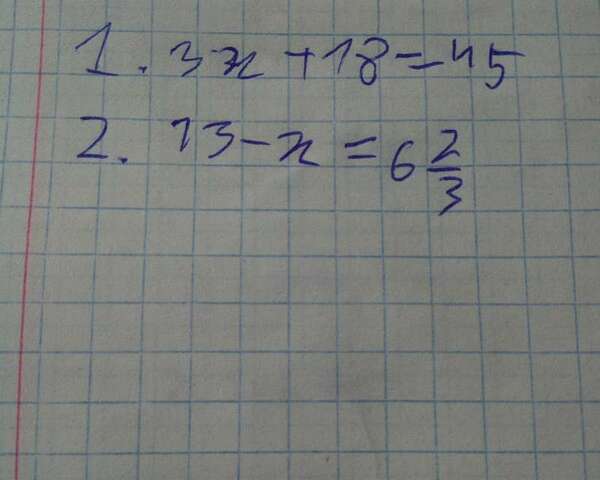 1. 3x+18=45
2. 13-x=6 2/3